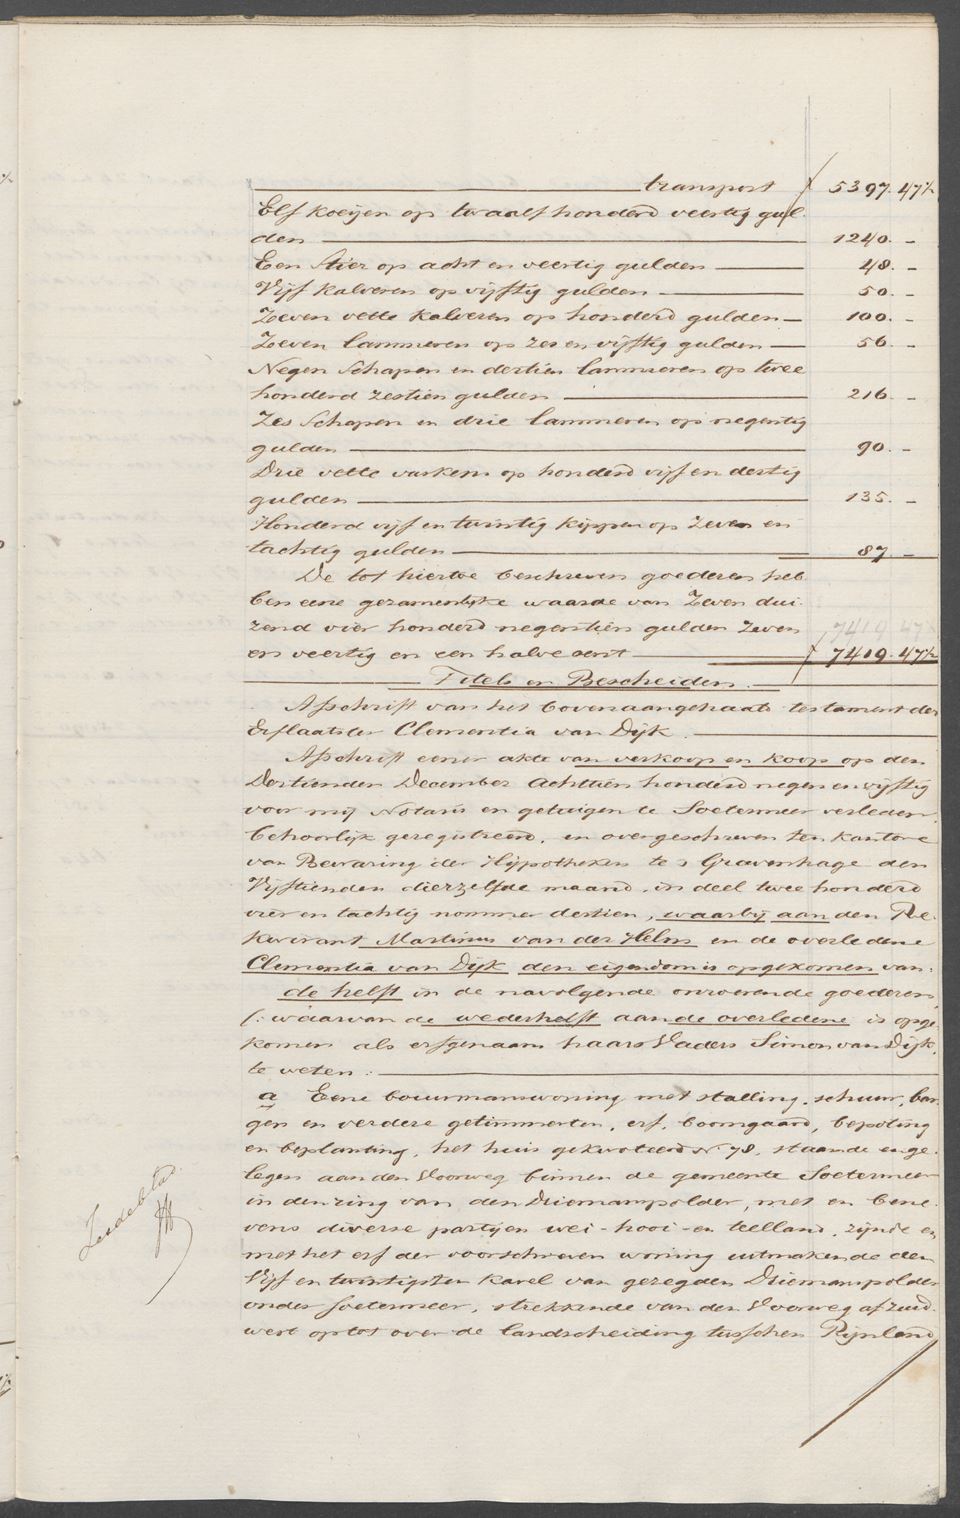 transport ƒ 5397.47½
Elf koeijen op twaalf honderd veertig gul
den 1240.-
Een Stier op acht en veertig gulden 48.-
Vijf kalveren op vijftig gulden 50.-
Zeven vette kalveren op honderd gulden 100.-
Zeven lammeren op zes en vijftig gulden 56.-
Negen Schapen en dertien lammeren op twee
honderd zestien gulden 216.-
Zes Schapen en drie lammeren op negentig
gulden 90.-
Drie vette varkens op honderd vijf en dertig
gulden 135.-
Honderd vijf en twintig kippen op zeven en
tachtig gulden 87.-
De tot hiertoe beschreven goederen heb
ben eene gezamentlijke waarde van Zeven dui
zend vier honderd negentien gulden zeven 7419 47½
en veertig en een halve cent ƒ 7419.47½
Titels en Bescheiden.
Afschrift van het bovenaangehaald testament der
Erflaatster Clementia van Dijk.
Afschrift eener akte van verkoop en koop op den
Dertienden December Achttien honderd negen en vijftig
voor mij Notaris en getuigen te Soetermeer verleden,
behoorlijk geregistreerd, en overgeschreven ten kantore
van Bewaring der Hijpotheken te s Gravenhage den
Vijftienden dierzelfde maand, in deel twee honderd
vier en tachtig nommer dertien, waarbij aan den Re-
kwirant Martinus van der Helm en de overledene
Clementia van Dijk den eigendom is opgekomen van
de helft in de navolgende onroerende goederen,
(: waarvan de wederhelft aan de overledene is opge-
komen als erfgenaam haars Vaders Simon van Dijk,
te weten:
a Eene bouwmanswoning met stalling, schuur, bar
gen en verdere getimmerten, erf, boomgaard, bepoting
en beplanting, het huis gekwoteerd No 78, staande en ge-
legen aan den Voorweg binnen de gemeente Soetermeer
in den ring van den Driemanspolder, met en bene-
vens diverse partijen wei- hooi- en teelland, zijnde en
met het erf der voorschreven woning uitmakende den
Vijf en twintigsten kavel van gezegden Driemanspolder
onder Soetermeer, strekkende van den Voorweg af zuid-
west op tot over de landscheiding tusschen Rijnland